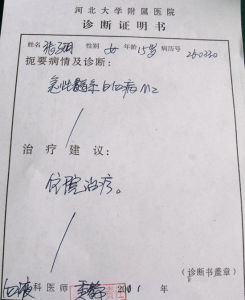 河北大学附属医院
诊断证明书
姓名 性别 女 年龄 15岁 病历号 250330
扼要病情及诊断:
急性髓系白血病M2
治疗建议:
住院治疗。
(诊断书盖章)
血液科医师 2011年